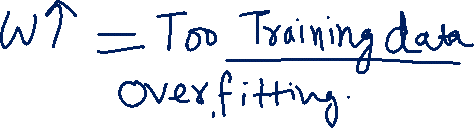 W↑ = Too Training data
Overfitting.